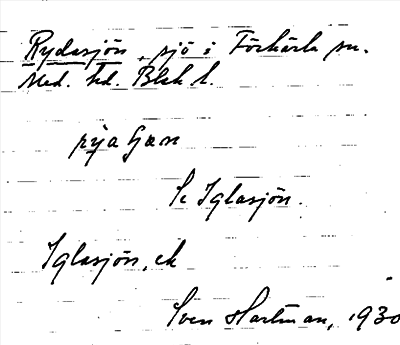 Rydasjön, sjö i Förkärla sn.
Med. hd. Blek l.
Se Iglasjön.
Iglasjön, ek
Sven Hartman, 1930